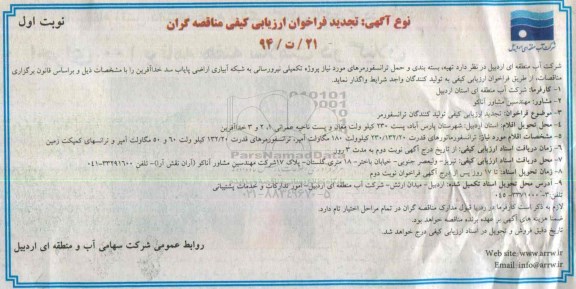 نوبت اول
نوع آگهی: تجدید فراخوان ارزیابی کیفی مناقصه گران
۲۱ / ت / ۹۴
شرکت آب منطقه ای اردبیل
شرکت آب منطقه ای اردبیل در نظر دارد تهیه، بسته بندی و حمل ترانسفورمرهای مورد نیاز پروژه تکمیلی نیرورسانی به شبکه آبیاری اراضی پایاب سد خداآفرین را با مشخصات ذیل و براساس قانون برگزاری
مناقصات، از طریق فراخوان ارزیابی کیفی به تولید کنندگان واجد شرایط واگذار نماید.
۱- کارفرما: شرکت آب منطقه ای استان اردبیل
۲- مشاور: مهندسین مشاور آناکو
۳- موضوع فراخوان: تجدید ارزیابی کیفی تولید کنندگان ترانسفورمر
۴- محل تحویل اقلام: استان اردبیل، شهرستان پارس آباد، پست ۲۳۰ کیلو ولت مغان و پست ناحیه عمرانی ۱، ۲ و ۳ خداآفرین
۵- مشخصات اقلام مورد نیاز: ترانسفورماتورهای قدرت ۲۳۰/۱۳۲/۲۰ کیلوولت ۱۸۰ مگاولت آمپر، ترانسفورمرهای قدرت ۱۳۲/۲۰ کیلو ولت ۶۰ و ۵۰ مگاولت آمپر و ترانسهای کمپکت زمین
۶- زمان دریافت اسناد ارزیابی کیفی: از تاریخ درج آگهی نوبت دوم به مدت ۳ روز
۷- محل دریافت اسناد ارزیابی کیفی: تبریز- ولیعصر جنوبی- خیابان باختر- ۱۸ متری گلستان- پلاک ۱۷ شرکت مهندسین مشاور آناکو (آران نقش آرا)- تلفن ۳۳۲۹۱۶۰۰-۰۴۱
۸- زمان تحویل اسناد: تا ۱۷ روز پس از درج آگهی فراخوان نوبت دوم
۹- آدرس محل تحویل اسناد تکمیل شده: اردبیل- میدان ارتش- شرکت آب منطقه ای اردبیل- امور تدارکات و خدمات پشتیبانی
لازم به ذکر است کارفرما در رد یا قبول مدارک مناقصه گران در تمام مراحل اختیار تام دارد.
ضمنا هزینه های آگهی بر عهده برنده مناقصه خواهد بود.
تاریخ دقیق فروش و تحویل در اسناد ارزیابی کیفی درج خواهد شد.
روابط عمومی شرکت سهامی آب و منطقه ای اردبیل
Web site: www.arrw.ir
Email: info@arrw.ir
ParsNamadData